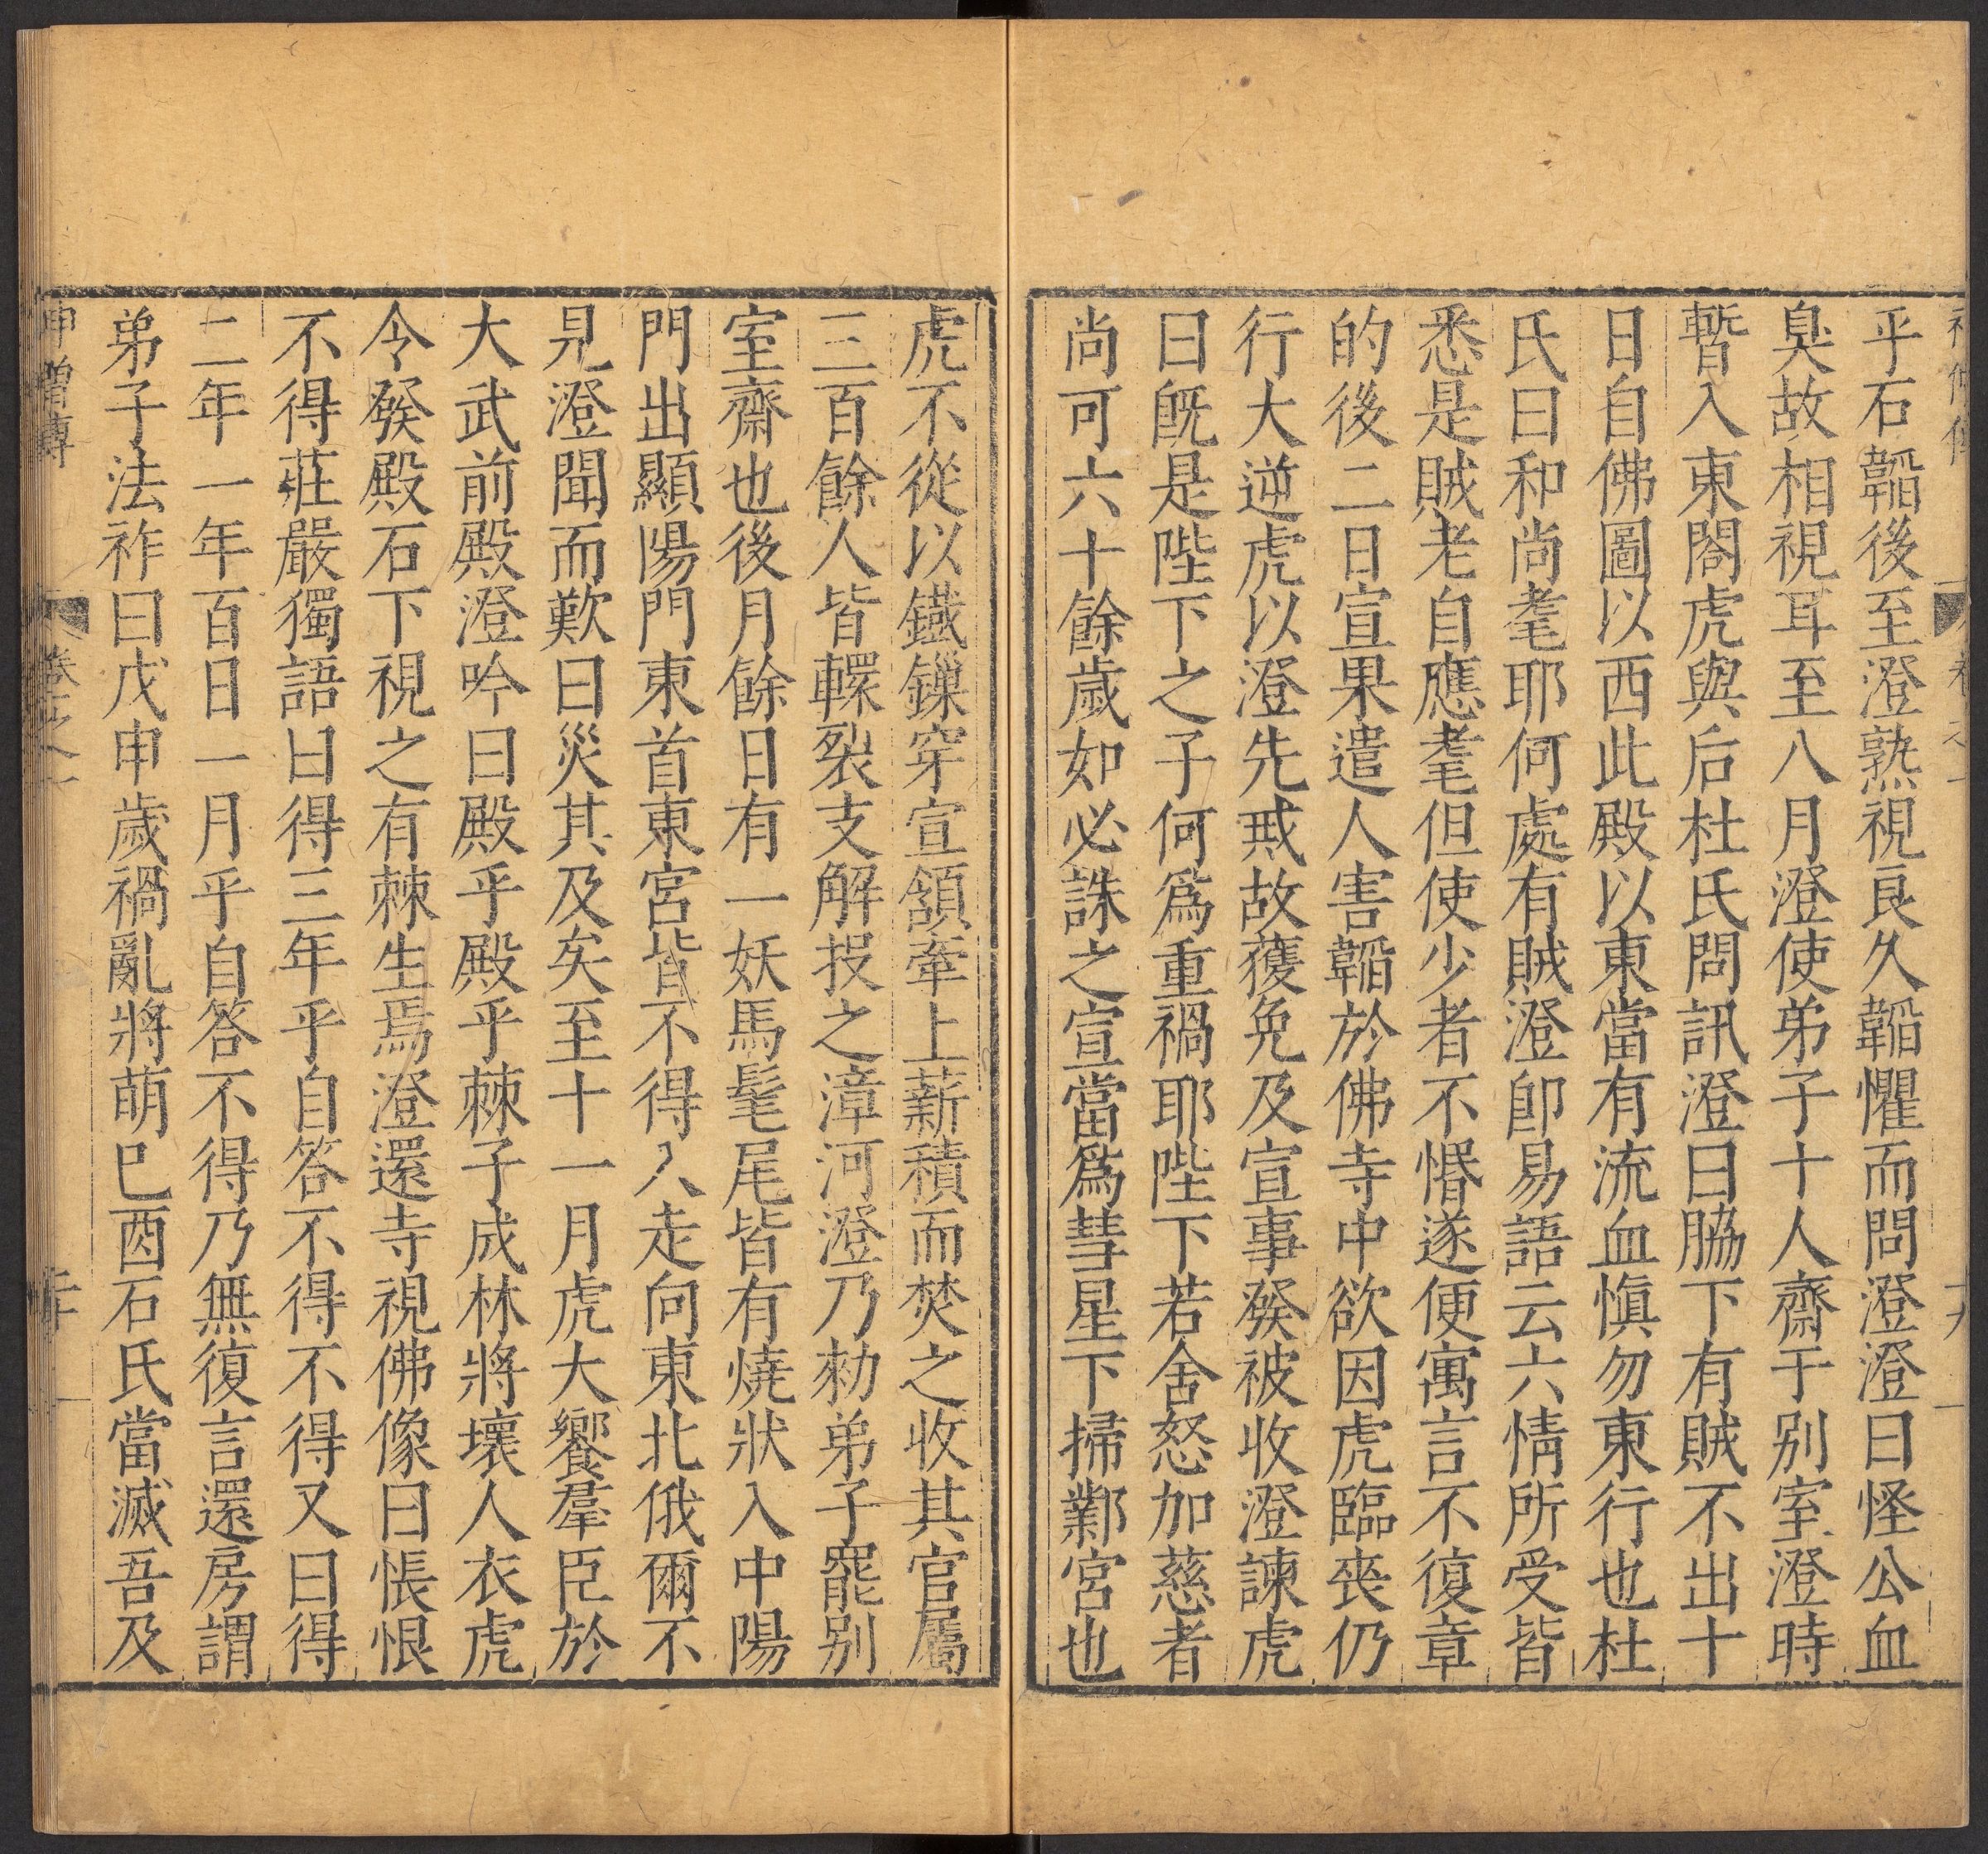 乎石韜後至澄熟視良久韜懼而問澄澄曰怪公血
臭故相視耳至八月澄使弟子十人齋于别室澄時
暫入東閤虎與后杜氏問訊澄曰脇下有賊不出十
日自佛圖以西此殿以東當有流血愼勿東行也杜
氏曰和尚耄耶何處有賊澄卽易語云六情所受皆
悉是賊老自應耄但使少者不惛遂便寓言不復章
的後二日宣果遣人害韜於佛寺中欲因虎臨喪仍
行大逆虎以澄先戒故獲免及宣事發被收澄諫虎
曰旣是陛下之子何爲重禍耶陛下若舍怒加慈者
尚可六十餘歲如必誅之宣當爲彗星下掃鄴宮也
虎不從以鐵鏁穿宣頷牽上薪積而焚之收其官屬
三百餘人皆轘裂支解投之漳河澄乃勑弟子罷别
室齋也後月餘日有一妖馬髦尾皆有燒狀入中陽
門出顯陽門東首東宮皆不得入走向東北俄爾不
見澄聞而歎曰災其及矣至十一月虎大饗羣臣於
大武前殿澄吟曰殿乎殿乎棘子成林將壞人衣虎
令發殿石下視之有棘生焉澄還寺視佛像曰悵恨
不得莊嚴獨語曰得三年乎自答不得不得又曰得
二年一年百日一月乎自答不得乃無復言還房謂
弟子法祚曰戊申歲禍亂將萌巳酉石氏當滅吾及
神僧傳 卷之一 二十